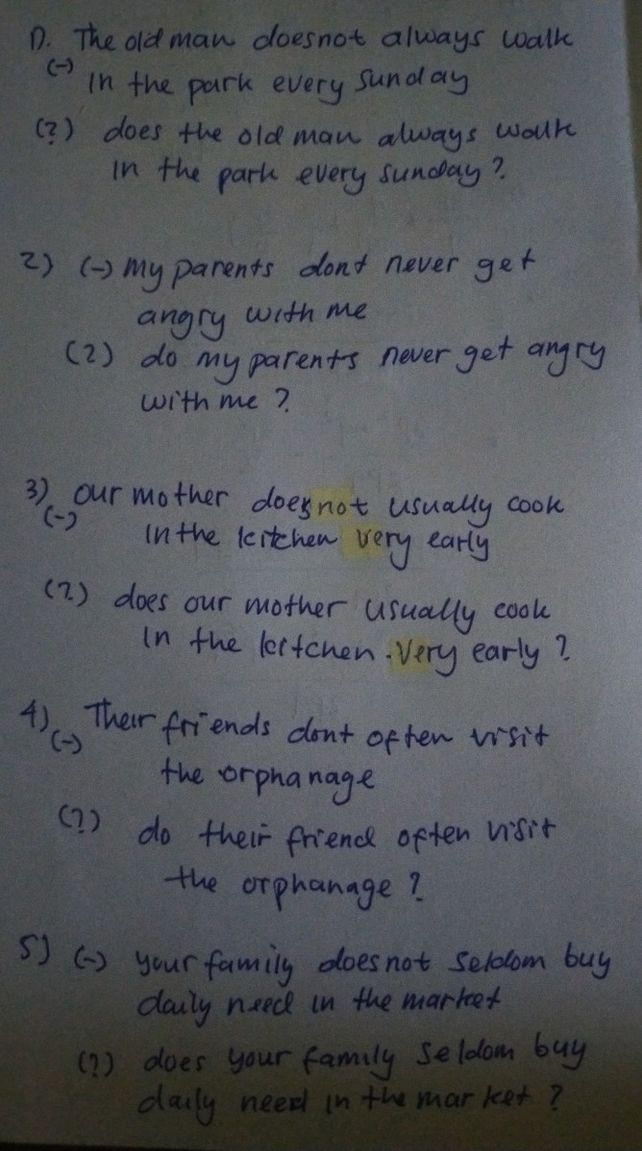 1). The old man doesnot always walk
(-) in the park every sunday
(?) does the old man always walk
in the park every sunday?
2) (-) my parents dont never get
angry with me
(?) do my parents never get angry
with me ?
3) our mother doesnot usually cook
(-) in the kitchen very early
(?) does our mother usually cook
in the kitchen very early ?
4) Their friends dont often visit
(-) the orphanage
(?) do their friend often visit
the orphanage ?
5) (-) your family does not seldom buy
daily need in the market
(?) does your family seldom buy
daily need in the market ?